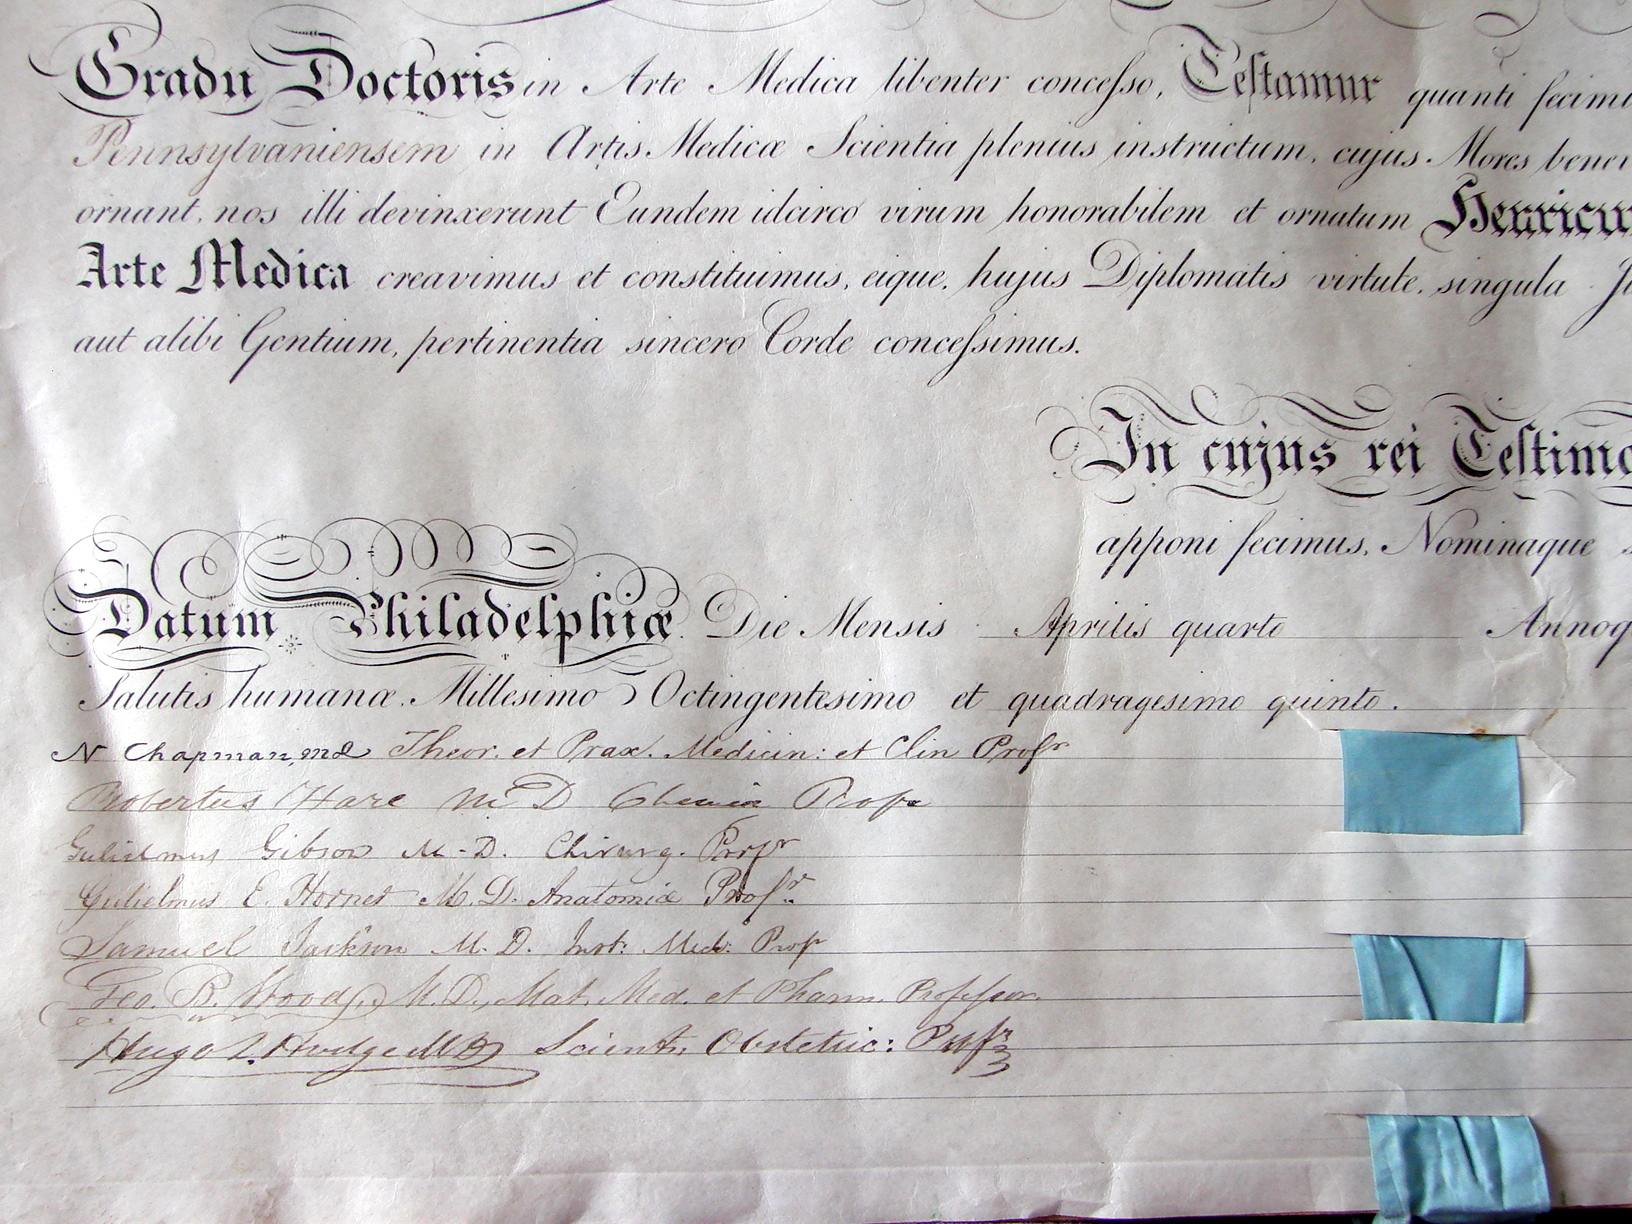 Gradu Doctoris in Arte Medica libenter concesso, Testamur quanti fecim
Pennsylvaniensem in Artis Medicæ Scientia plenius instructum, cujus Mores bene
ornant, nos illi devinxerunt Eundem idcirco virum honorabilem et ornatum Henricu
Arte Medica creavimus et constituimus, eique, hujus Diplomatis virtute, singula J
aut alibi Gentium, pertinentia sincero Corde concessimus.
In cujus rei Testimo
apponi fecimus, Nominaque
Datum Philadelphiæ. Die Mensis Aprilis quarto Annoq
Salutis humanæ. Millesimo Octingentesimo et quadragesimo quinto.
N Chapman, md Theor. et Prax. Medicin: et Clin Profr
Robertus Hare M D Chemiæ Profr
Gulielmus Gibson M-D. Chirurg. Profr
Gulielmus E. Horner M.D. Anatomiæ Profr.
Samuel Jackson M.D. Inst: Med: Prof
Geo. B. Wood, M.D., Mat. Med. et Pharm. Professor.
Hugo L. Hodge MD Scient: Obstetric: Profr